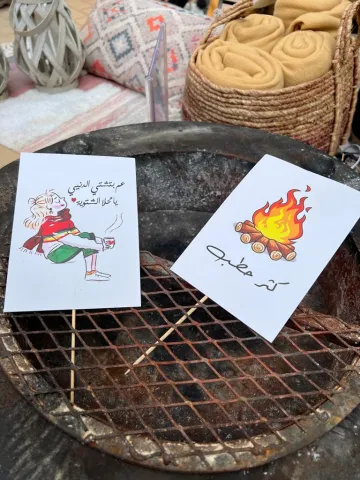 عم بتشتي الدنيي
يا محلا الشتوية
كتر حطب